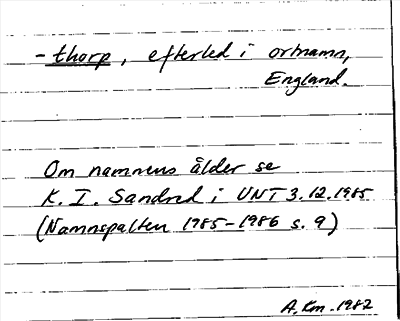 - thorp, efterled i ortnamn,
England.
Om namnens ålder se
K. I. Sandred i UNT 3.12.1985
(Namnspalten 1985-1986 s. 9)
A. Km. 1987